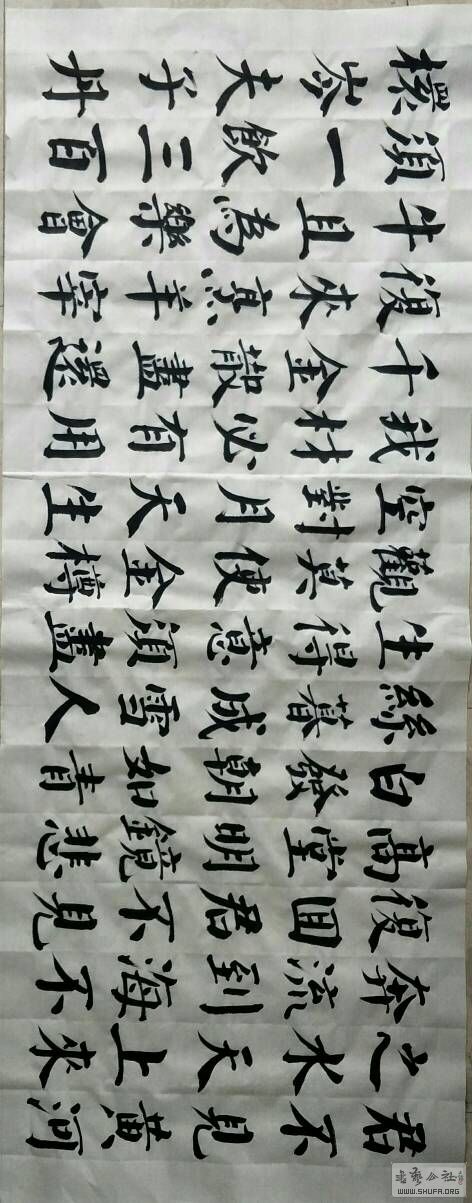 君不見黃河
之水天上來
奔流到海不
復回君不見
高堂明鏡悲
白發朝如青
絲暮成雪人
生得意須盡
觀莫使金樽
空對月天生
我材必有用
千金散盡還
復來烹羊宰
牛且為樂會
須一飲三百
岑夫子丹
WWW.SHUFA.ORG